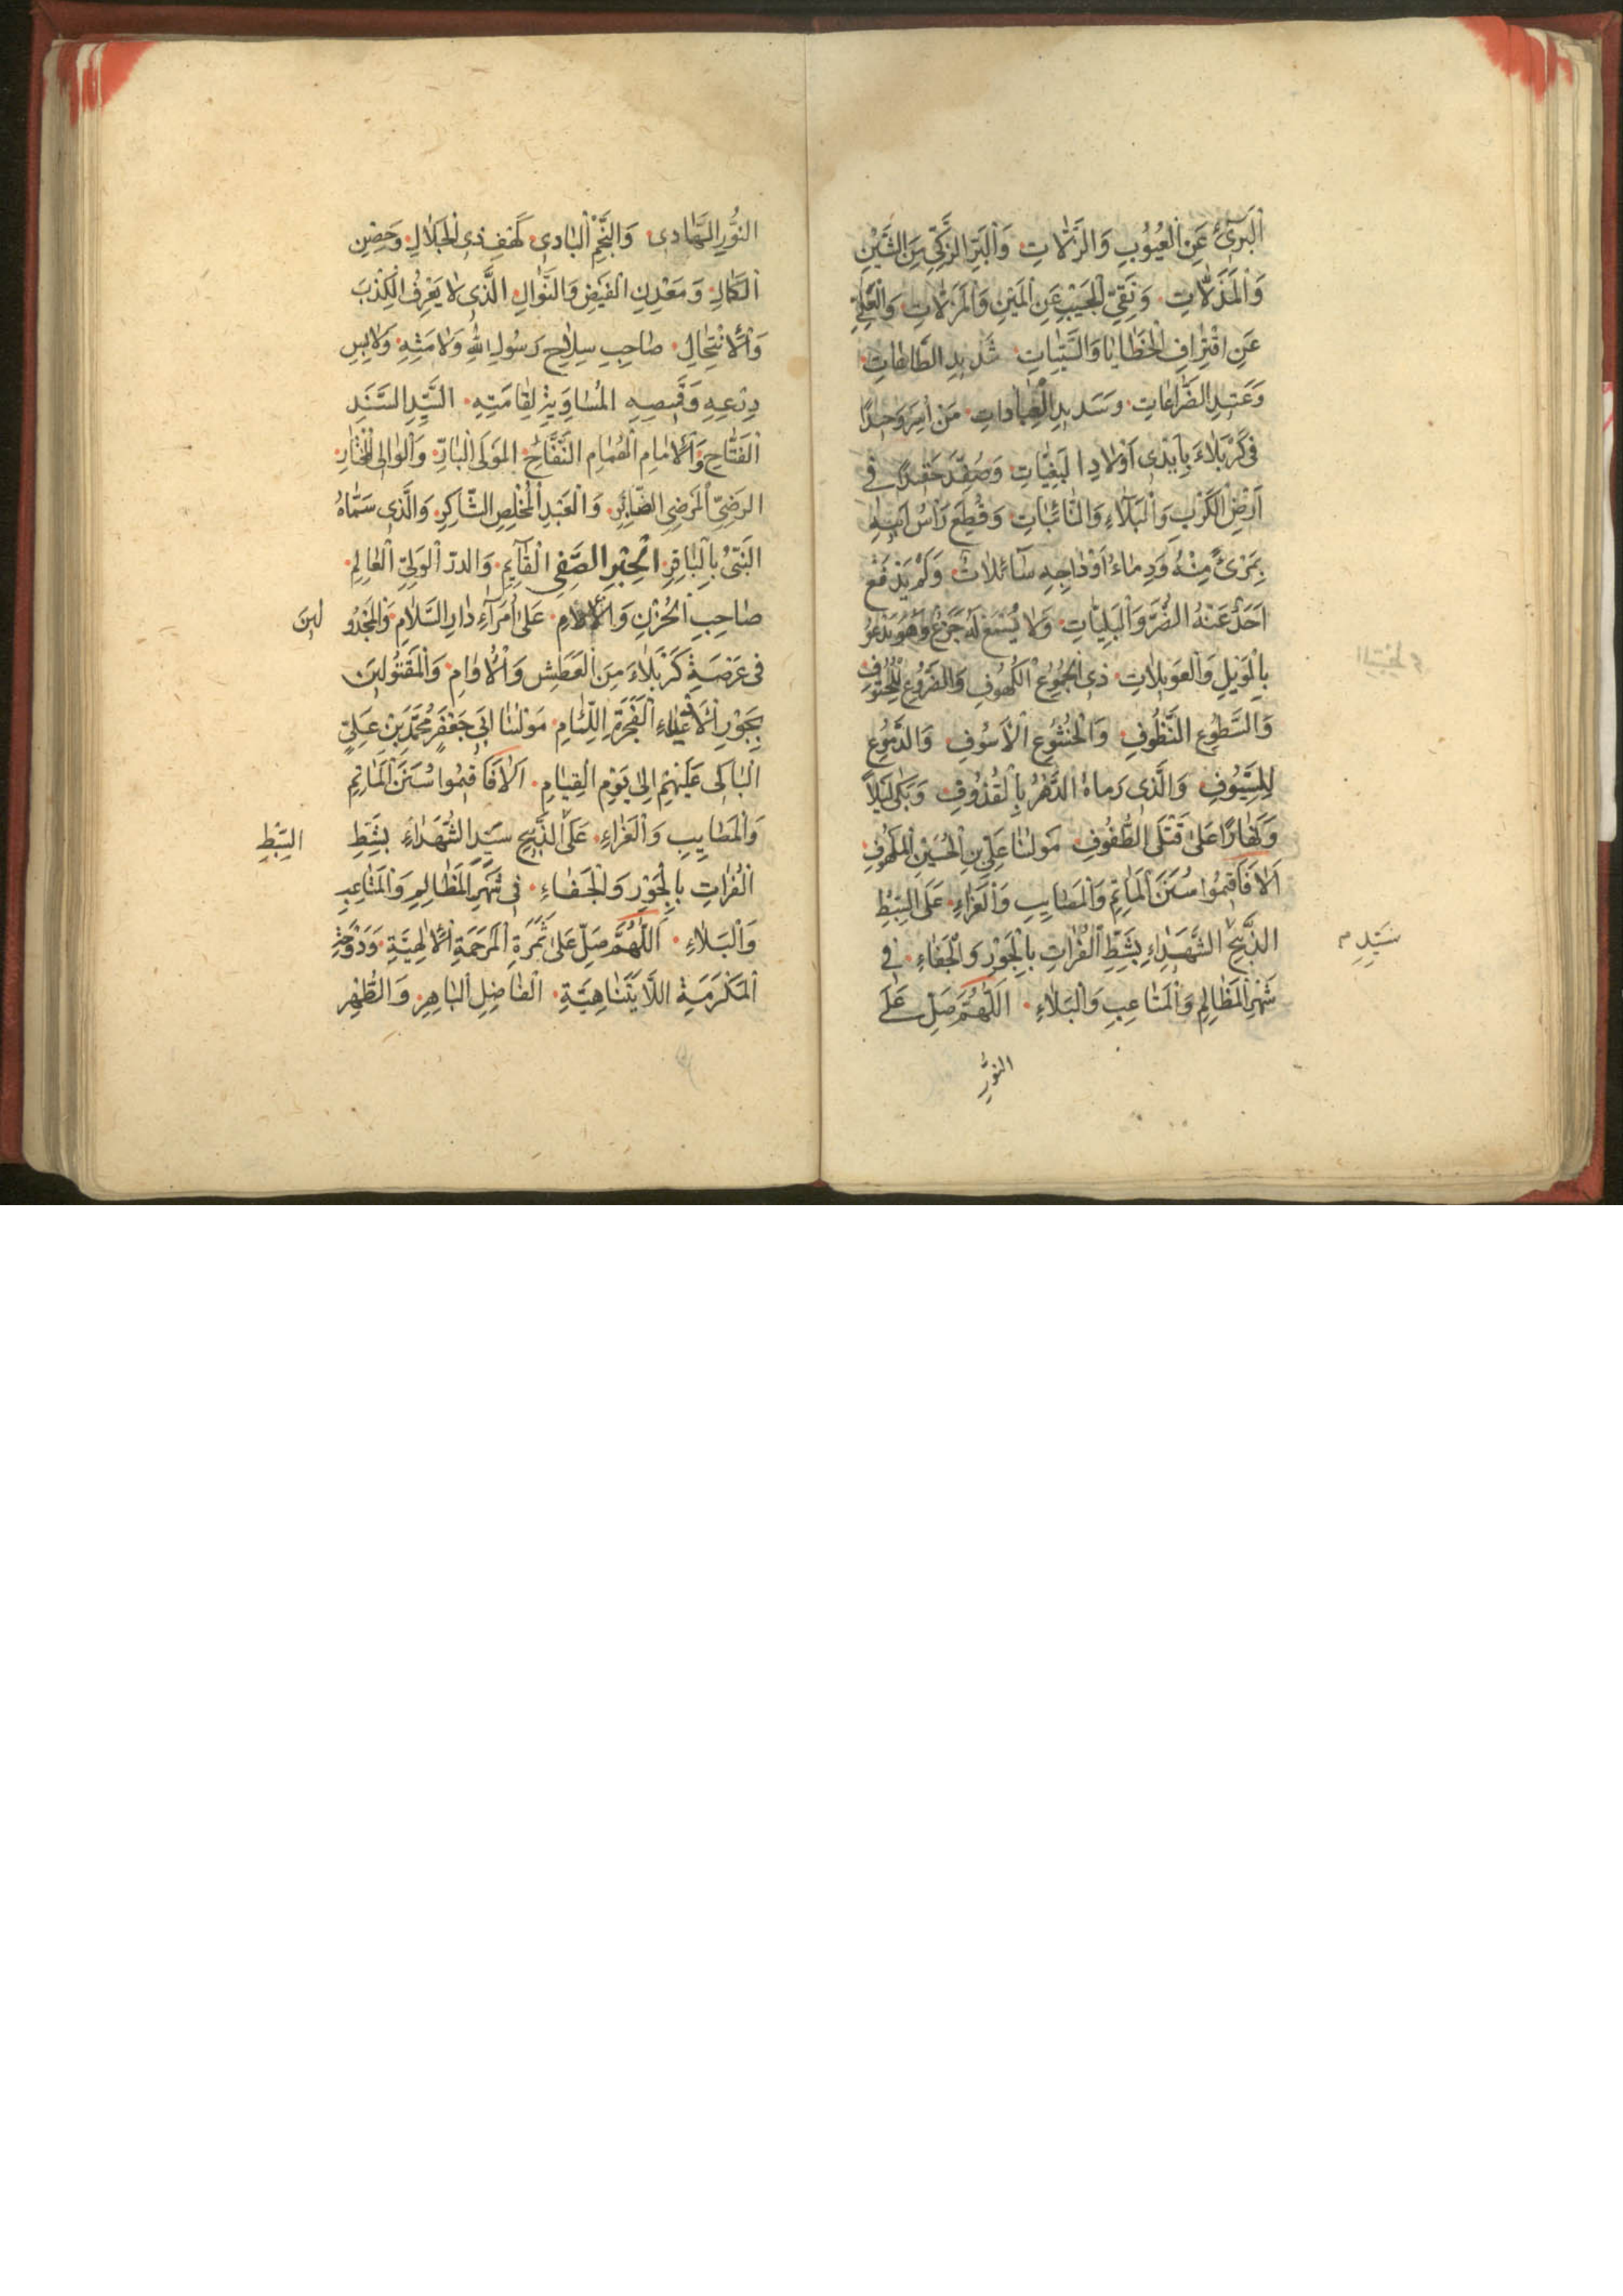 اَلْبَرِیِٔ عَنِ الْعُیُوبِ وَالزَّلّاتِ وَالْبَرِّ الزَّکِیِّ مِنَ الشَّیْنِ
وَالْمَذَلّاتِ وَنَقِیِّ الْجَیْبِ عَنِ الْمَیْنِ وَالْمَزَلّاتِ
عَنِ اقْتِرافِ الْخَطایا وَالسَّیِّئاتِ شَدیدِ الطّاعاتِ
الضَّراعاتِ وَسَدیدِ الْعِباداتِ مَنْ اُسِرَ وَحیدًا
فی کَرْبَلاءَ بِاَیْدی اَوْلادِ الْبَغِیّاتِ وَصُفِّدَ فی
اَرْضِ الْکَرْبِ وَالْبَلاءِ وَالنّائِباتِ وَقُطِعَ رَأْسُ اَبیهِ
بِمَرْیً مِنْهُ وَدِماءُ اَوْداجِهِ سآئِلاتٌ وَلَمْ یَدْفَعْ
اَحَدٌ عَنْهُ الضُّرَّ وَالْبَلِیّاتِ وَلا یُسْمَعُ لَهُ جَزَعٌ وَهُوَ یَدْعُو
بِالْوَیْلِ وَالْعَویلاتِ ذِی الْجُمُوعِ الْکُهُوفِ وَالْفُرُوعِ
وَالسُّطُوعِ النَّظُوفِ وَالْخُشُوعِ الْاَسُوفِ وَالدُّمُوعِ
وَالَّذی رَماهُ الدَّهْرُ بِالْقُذُوفِ وَبَکی لَیْلًا
وَنَهارًا عَلی قَتْلَی الطُّفُوفِ مَوْلٰنا عَلِیِّ بْنِ الْحُسَیْنِ الْمَلْهُوفِ
اَلا فَاَقیمُوا سُنَنَ الْمَاتِمِ وَالْمَصایِبِ وَالْعَزاءِ عَلَی السِّبْطِ
الذَّبیحِ الشُّهَداءِ بِشَطِّ الْفُراتِ بِالْجَوْرِ وَالْجَفاءِ فی
سَیِّدِ م
شَهْرِ الْمَظالِمِ وَالْمَتاعِبِ وَالْبَلاءِ اَللّٰهُمَّ صَلِّ عَلٰی
النُّورِ
النُّورِ الْهادی وَالنَّجْمِ الْبادی کَهْفِ ذِی الْجَلالِ وَحِصْنِ
الْکَمالِ وَمَعْدِنِ الْفَیْضِ وَالنَّوالِ الَّذی لا یَعْرِفُ الْکِذْبَ
وَالْاِنْتِحالِ صاحِبِ سِلاحِ رَسُولِ اللهِ وَلامَتِهِ وَلابِسِ
دِرْعِهِ وَقَمیصِهِ الْمُساوِیَةِ لِقامَتِهِ السَّیِّدِ السَّنَدِ
الْفَتّاحِ وَالْاِمامِ الْهُمامِ النَّفّاحِ الْمَوْلَی الْبارِّ وَالْوالِی الْمُخْتارِ
الرَّضِیِّ الْمَرْضِیِّ وَالْعَبْدِ الْمُخْلِصِ الشّاکِرِ وَالَّذی سَمّاهُ
النَّبِیُّ بِالْباقِرِ الْحِبْرِ الصَّفِی الْقآئِمِ وَالدُّرِّ الْوَلِیِّ الْعالِمِ
صاحِبِ الْحُزْنِ وَالْآلامِ عَلٰی اُمَرآءِ دارِ السَّلامِ وَالْمَجْدُو لینَ
فی عَرْصَةِ کَرْبَلاءَ مِنَ الْعَطَشِ وَالْاُوامِ وَالْمَقْتُولینَ
بِجَوْرِ الْاَدْعِیاءِ الْفَجَرَةِ اللِّئامِ مَوْلٰنا اَبی جَعْفَرٍ مُحَمَّدِ بْنِ عَلِیٍّ
الْباکی عَلَیْهِمْ اِلٰی یَوْمِ الْقِیامِ اَلا فَاَقیمُوا سُنَنَ الْمَاتِمِ
وَالْمَصایِبِ وَالْعَزاءِ عَلَی الذَّبیحِ سَیِّدِ الشُّهَداءِ بِشَطِّ
السِّبْطِ
الْفُراتِ بِالْجَوْرِ وَالْجَفاءِ فی شَهْرِ الْمَظالِمِ وَالْمَتاعِبِ
وَالْبَلاءِ اَللّٰهُمَّ صَلِّ عَلٰی ثَمَرَةِ الْمَرْحَمَةِ الْاِلٰهِیَّةِ وَدَوْحَةِ
الْمَکْرَمَةِ اللّایَتَناهِیَّةِ الْفاضِلِ الْباهِرِ وَالطُّهْرِ